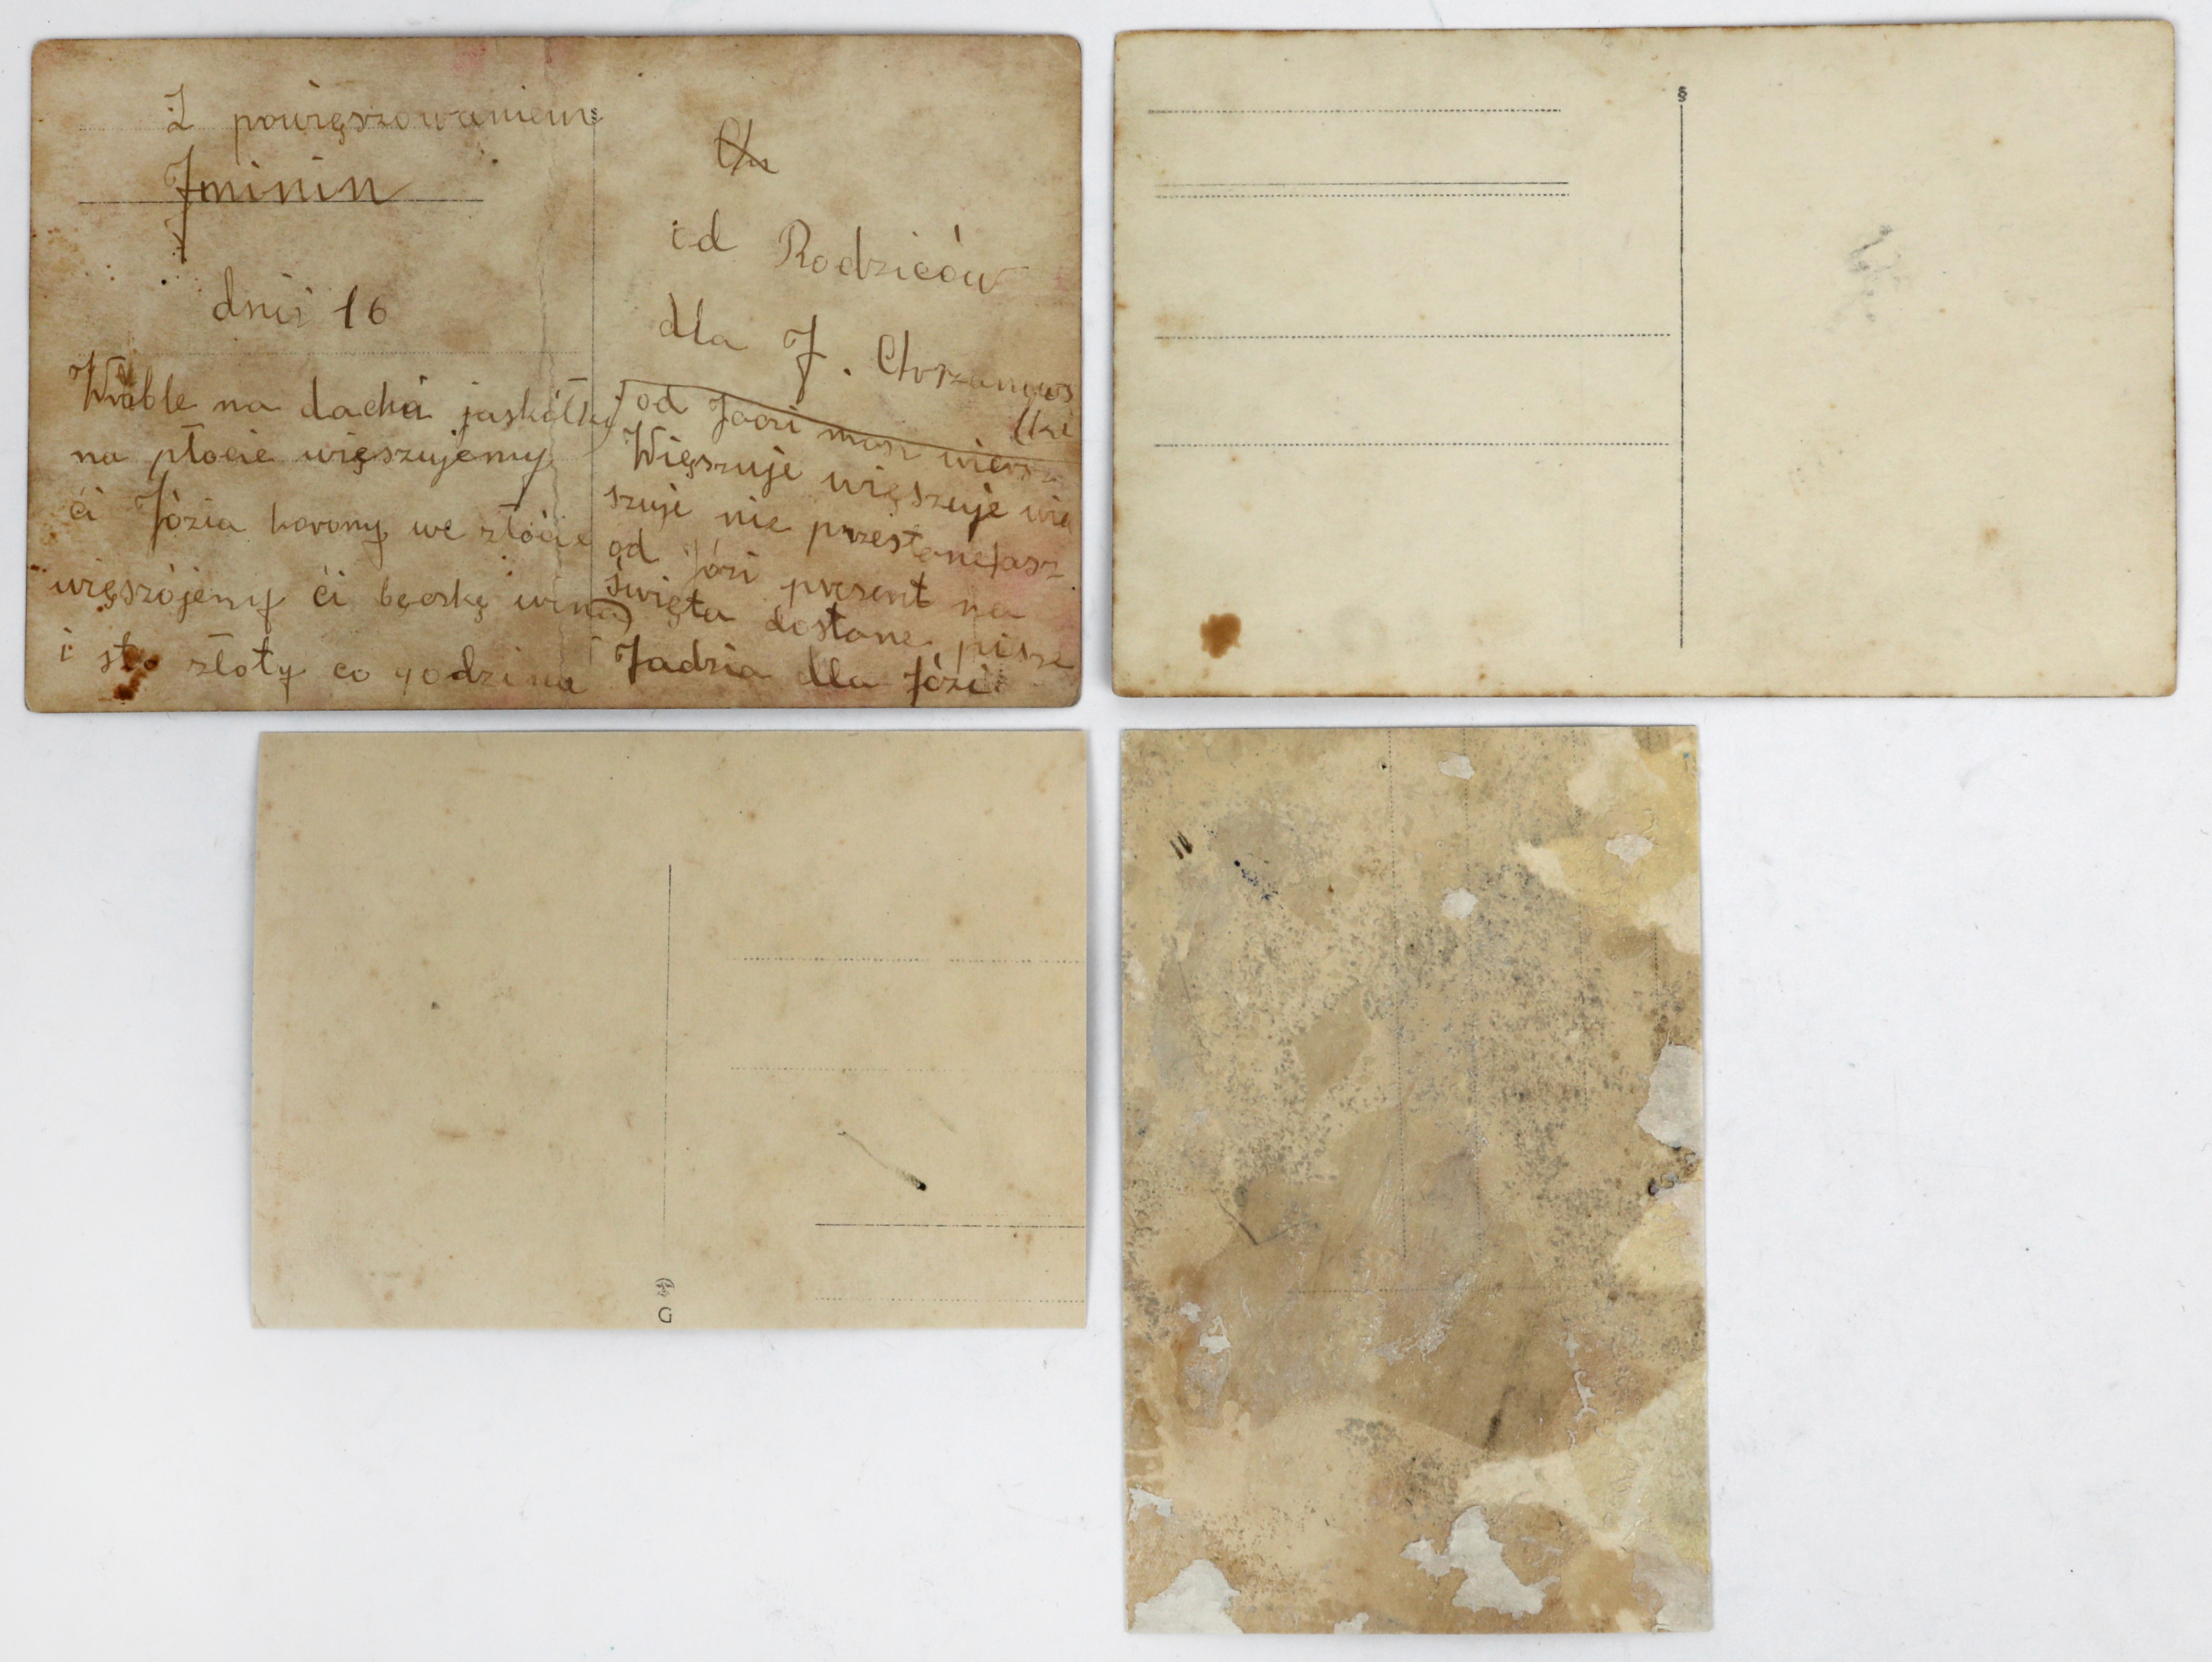 Z powięszowaniem
Jminin
dnia 16
Wróble na dachu jaskółky
na płocie więszujemy
ći Józia korony we złócie
więszójemy ći bęczkę wina
i sto złoty co godzina
od Rodziców
dla J. Chrzanows
ki
od Józi masz wiersz
Więszuje więszuje wię
szuje nie przestane
od Józi prezent na
święta dostane pisze
Jadzia dla Józi
§
G